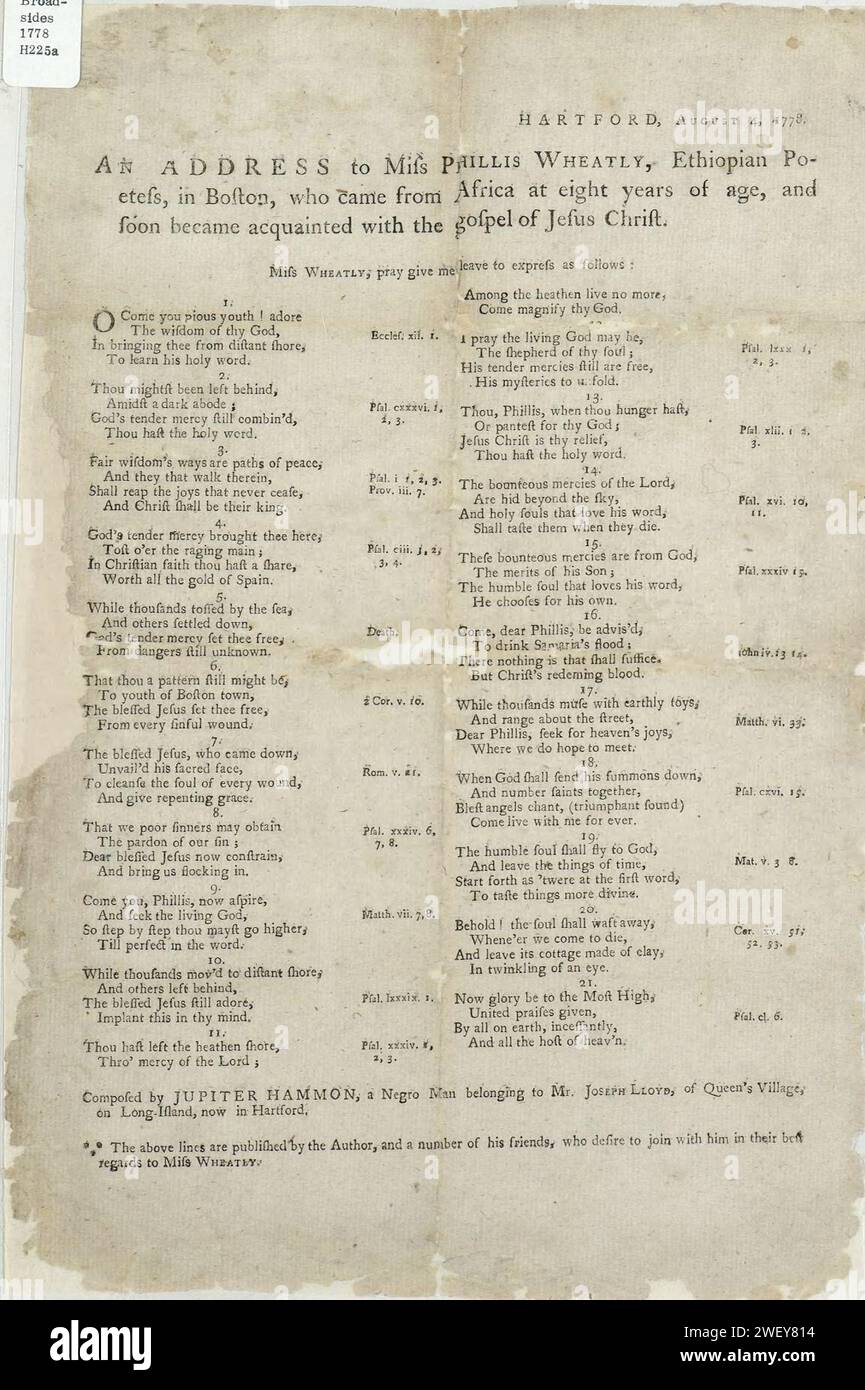 Broad-
sides
1778
H225a
HARTFORD, August 4, 1778.
AN ADDRESS to Miſs PHILLIS WHEATLY, Ethiopian Po-
eteſs, in Boſton, who came from Africa at eight years of age, and
ſoon became acquainted with the goſpel of Jeſus Chriſt.
Miſs WHEATLY; pray give me leave to expreſs as follows :
1.
O Come you pious youth ! adore
The wiſdom of thy God,
Eccleſ. xii. 1.
In bringing thee from diſtant ſhore,
To learn his holy word.
2.
Thou mightſt been left behind,
Amidſt a dark abode ;
Pſal. cxxxvi. 1,
2, 3.
God's tender mercy ſtill combin'd,
Thou haſt the holy word.
3.
Fair wiſdom's ways are paths of peace,
And they that walk therein,
Pſal. i 1, 2, 3.
Prov. iii. 7.
Shall reap the joys that never ceaſe,
And Chriſt ſhall be their king.
4.
God's tender mercy brought thee here,
Toſt o'er the raging main ;
Pſal. ciii. 1, 2,
3, 4.
In Chriſtian faith thou haſt a ſhare,
Worth all the gold of Spain.
5.
While thouſands toſſed by the ſea,
And others ſettled down,
Death.
God's tender mercy ſet thee free,
From dangers ſtill unknown.
6.
That thou a pattern ſtill might be,
To youth of Boſton town,
2 Cor. v. 10.
The bleſſed Jeſus ſet thee free,
From every ſinful wound.
7.
The bleſſed Jeſus, who came down,
Unvail'd his ſacred face,
Rom. v. 21.
To cleanſe the ſoul of every wound,
And give repenting grace.
8.
That we poor ſinners may obtain
The pardon of our ſin ;
Pſal. xxxiv. 6,
7, 8.
Dear bleſſed Jeſus now conſtrain,
And bring us flocking in.
9.
Come you, Phillis, now aſpire,
And ſeek the living God,
Matth. vii. 7, 8.
So ſtep by ſtep thou mayſt go higher,
Till perfect in the word.
10.
While thouſands mov'd to diſtant ſhore,
And others left behind,
Pſal. lxxxix. 1.
The bleſſed Jeſus ſtill adore,
Implant this in thy mind.
11.
Thou haſt left the heathen ſhore,
Thro' mercy of the Lord ;
Pſal. xxxiv. 1,
2, 3.
Among the heathen live no more,
Come magnify thy God.
I pray the living God may be,
The ſhepherd of thy ſoul ;
Pſal. lxxx 1,
2, 3.
His tender mercies ſtill are free,
His myſteries to unfold.
13.
Thou, Phillis, when thou hunger haſt,
Or panteſt for thy God ;
Pſal. xlii. 1 2.
3.
Jeſus Chriſt is thy relief,
Thou haſt the holy word.
14.
The bounteous mercies of the Lord,
Are hid beyond the ſky,
Pſal. xvi. 10,
11.
And holy ſouls that love his word,
Shall taſte them when they die.
15.
Theſe bounteous mercies are from God,
The merits of his Son ;
Pſal. xxxiv 15.
The humble ſoul that loves his word,
He chooſes for his own.
16.
Come, dear Phillis, be advis'd,
To drink Samaria's flood ;
John iv. 13 14.
There nothing is that ſhall ſuffice,
But Chriſt's redeming blood.
17.
While thouſands muſe with earthly toys,
And range about the ſtreet,
Matth. vi. 33.
Dear Phillis, ſeek for heaven's joys,
Where we do hope to meet.
18.
When God ſhall ſend his ſummons down,
And number ſaints together,
Pſal. cxvi. 15.
Bleſt angels chant, (triumphant ſound)
Come live with me for ever.
19.
The humble ſoul ſhall fly to God,
And leave the things of time,
Mat. v. 3 8.
Start forth as 'twere at the firſt word,
To taſte things more divine.
20.
Behold ! the ſoul ſhall waft away,
Whene'er we come to die,
Cor. xv. 51,
52, 53.
And leave its cottage made of clay,
In twinkling of an eye.
21.
Now glory be to the Moſt High,
United praiſes given,
Pſal. cl. 6.
By all on earth, inceſſantly,
And all the hoſt of heav'n.
Compoſed by JUPITER HAMMON, a Negro Man belonging to Mr. JOSEPH LLOYD, of Queen's Village,
on Long-Iſland, now in Hartford.
*⁎* The above lines are publiſhed by the Author, and a number of his friends, who deſire to join with him in their beſt
regards to Miſs WHEATLY.
alamy
Image ID: 2WEY814
www.alamy.com